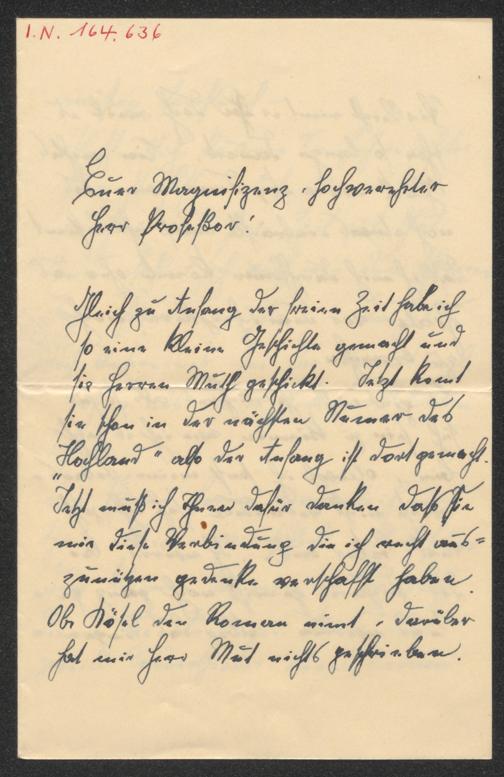 I.N. 164.636
Euer Magnifizenz, hochverehrter
Herr Professor!
Gleich zu Anfang der freien Zeit habe ich
so eine kleine Geschichte gemacht und
sie Herren Muth geschickt. Jetzt komt
sie schon in der nächsten Numer des
„Hochland" also der Anfang ist dort gemacht.
Jetzt muß ich Ihnen dafür danken daß Sie
mir diese Verbindung die ich recht aus=
zunützen gedenke verschafft haben.
Ob Kösel den Roman nimt, darüber
hat mir Herr Mut nichts geschrieben.